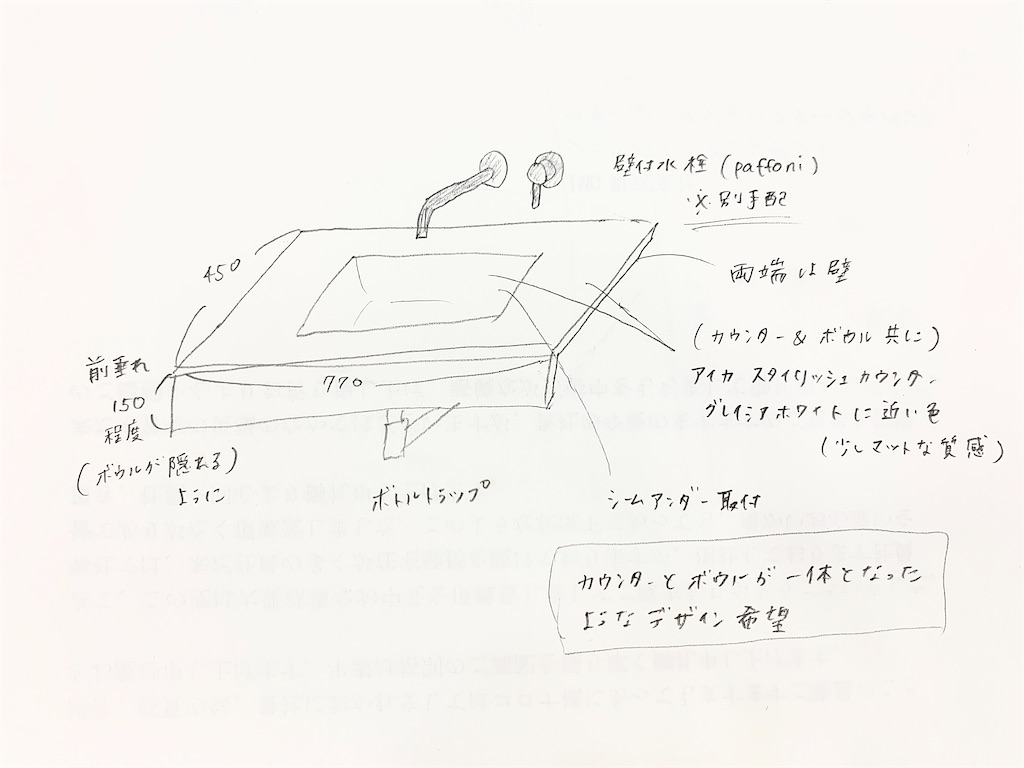 壁付水栓(paffoni)
※別手配
450
両端は壁
(カウンター&ボウル共に)
アイカ スタイリッシュカウンター
グレイシアホワイトに近い色
(少しマットな質感)
前垂れ
150
程度
(ボウルが隠れる)
ように
770
ボトルトラップ
シームアンダー取付
カウンターとボウルが一体となった
ようなデザイン希望